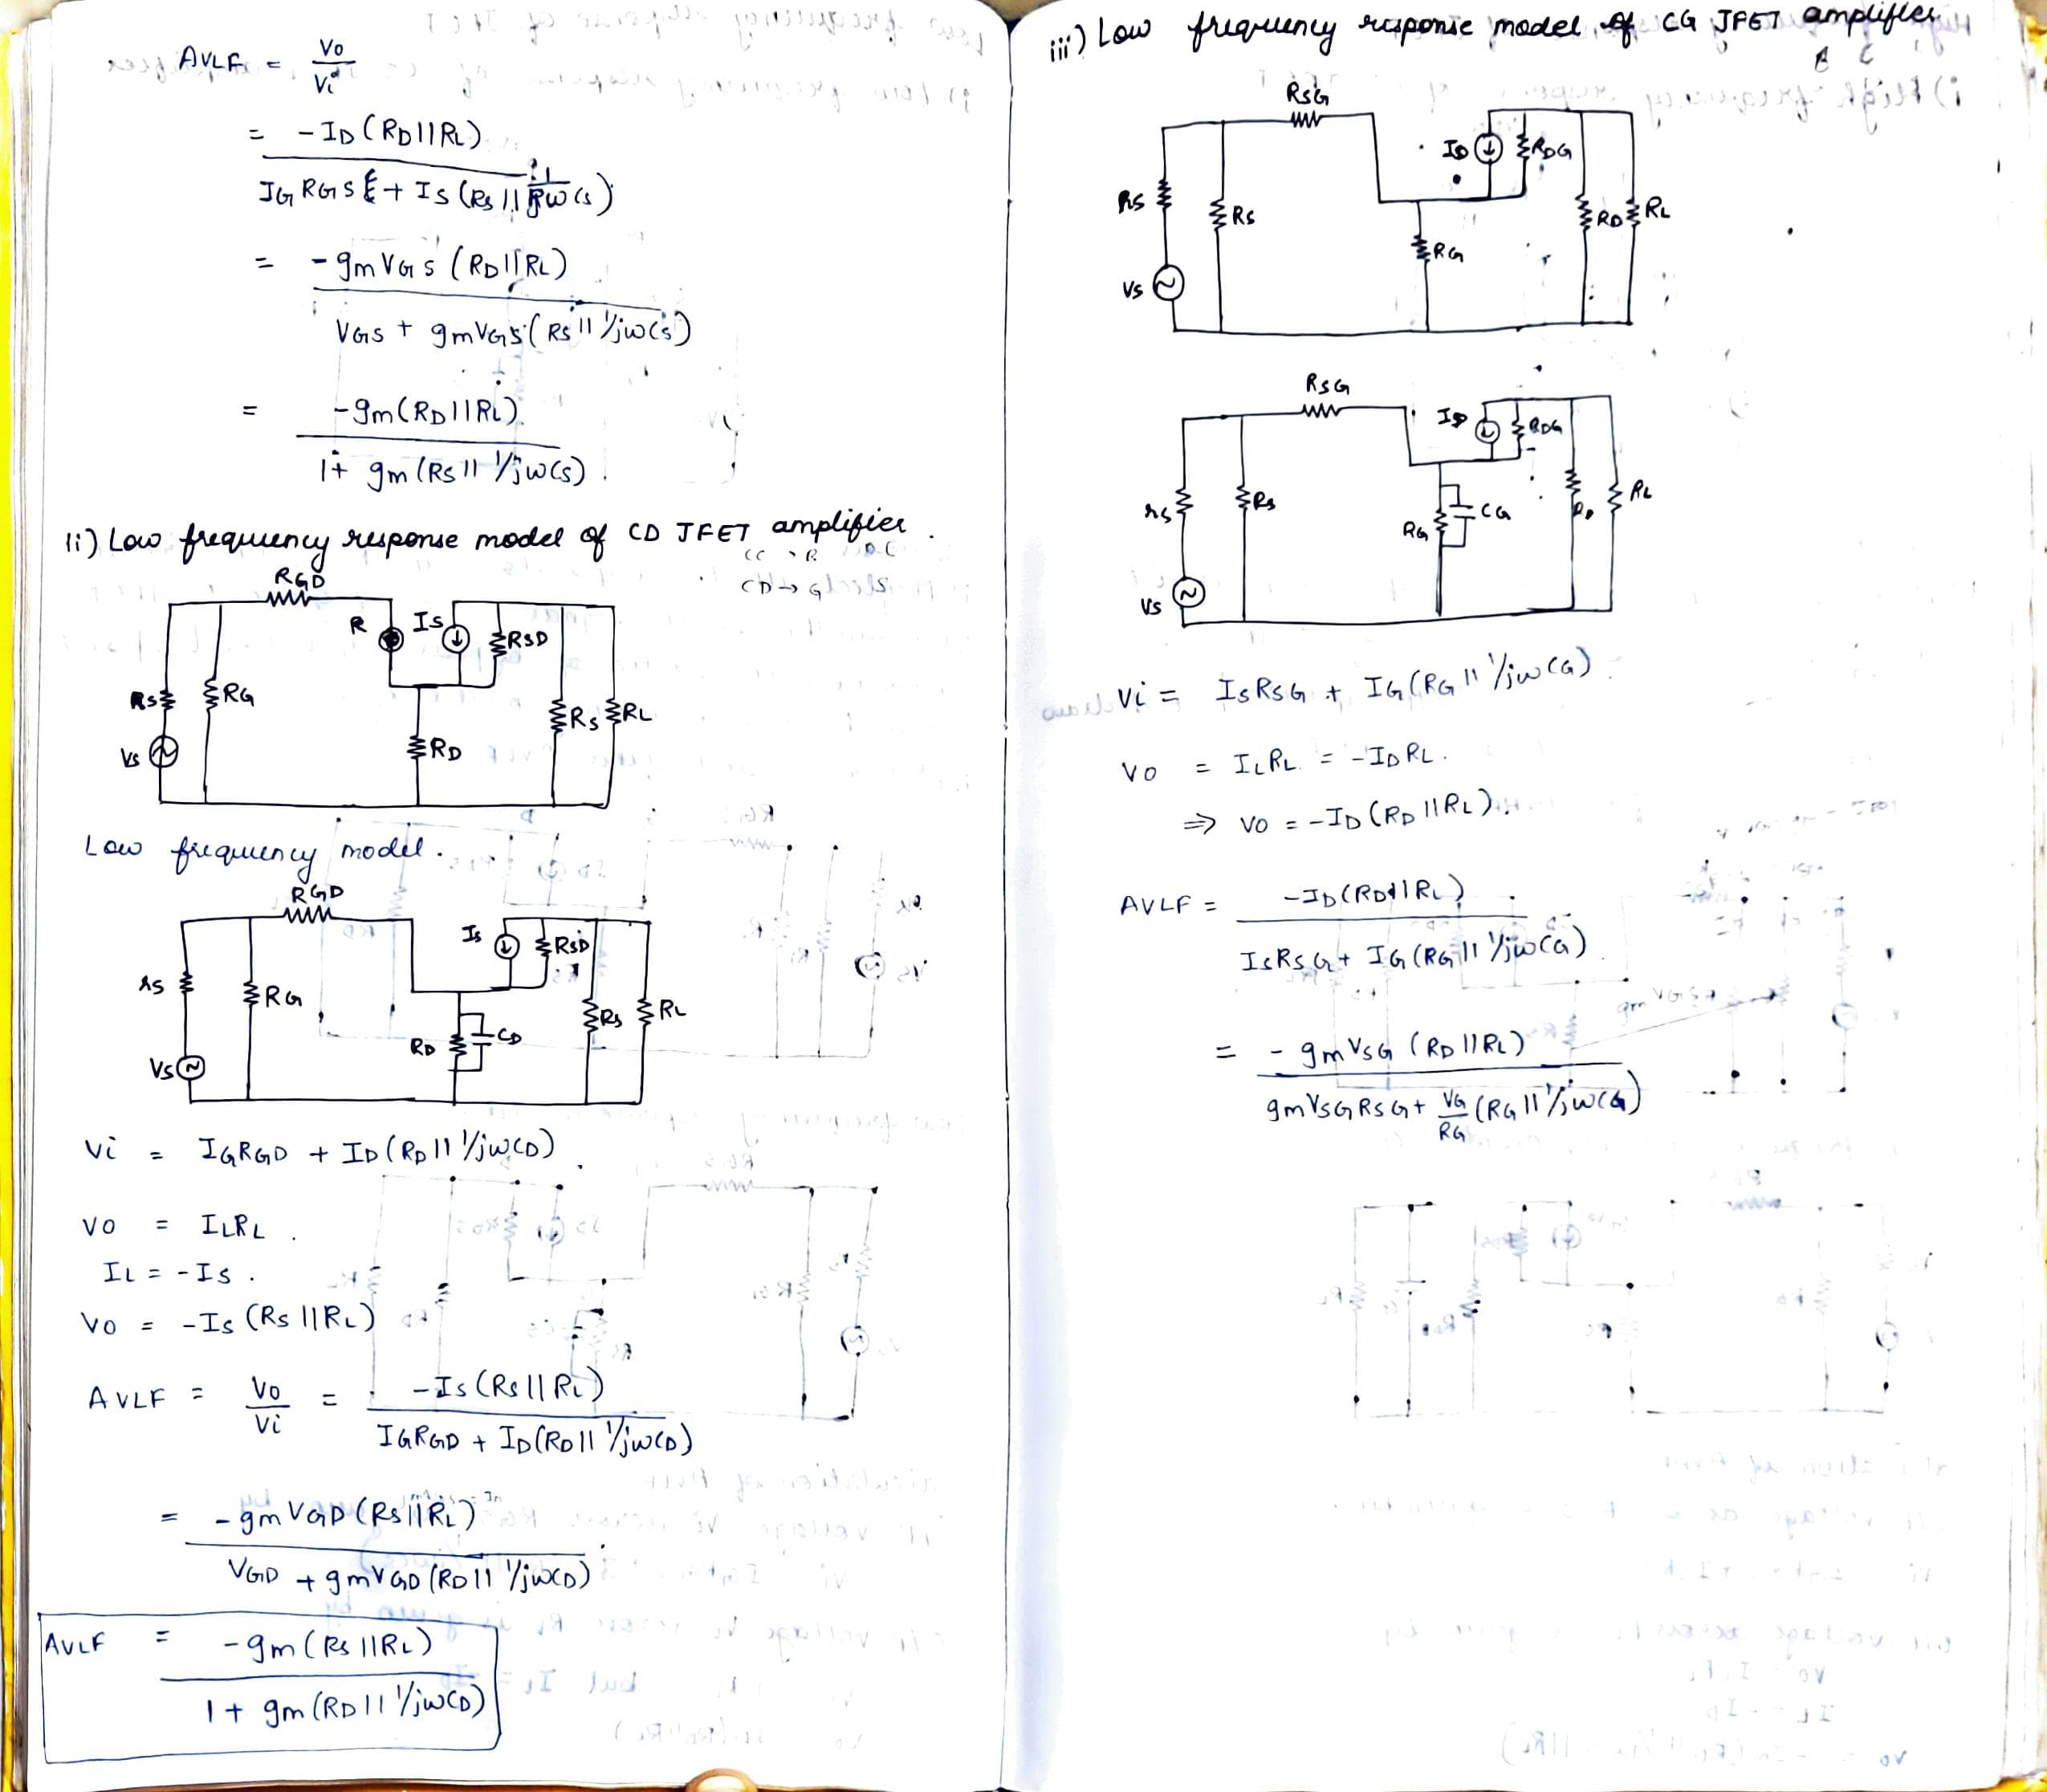 AVLF = Vo
Vi
= - ID (RD || RL)
IG RGS + IS (RS || 1/jωCS)
= - gm VGS (RD || RL)
VGS + gm VGS (RS || 1/jωCS)
= - gm (RD || RL)
1 + gm (RS || 1/jωCS) .
ii) Low frequency response model of CD JFET amplifier .
RGD
R
IS
RSD
RS
RG
RS
RL
VS
RD
Low frequency model .
RGD
IS
RSD
rS
RG
RS
RL
RD
CD
VS
Vi = IG RGD + ID (RD || 1/jωCD) .
VO = IL RL .
IL = - IS .
VO = - IS (RS || RL)
AVLF = VO = - IS (RS || RL)
Vi IG RGD + ID (RD || 1/jωCD)
= - gm VGD (RS || RL)
VGD + gm VGD (RD || 1/jωCD)
AVLF = - gm (RS || RL)
1 + gm (RD || 1/jωCD)
iii) Low frequency response model of CG JFET amplifier
RSG
ID
RDG
RS
RS
RG
RD
RL
VS
RSG
ID
RDG
rS
RS
RG
CG
RD
RL
VS
Vi = IS RSG + IG (RG || 1/jωCG)
VO = IL RL = - ID RL .
⇒ VO = - ID (RD || RL) .
AVLF = - ID (RD || RL)
IS RSG + IG (RG || 1/jωCG)
= - gm VSG (RD || RL)
gm VSG RSG + VG (RG || 1/jωCG)
RG